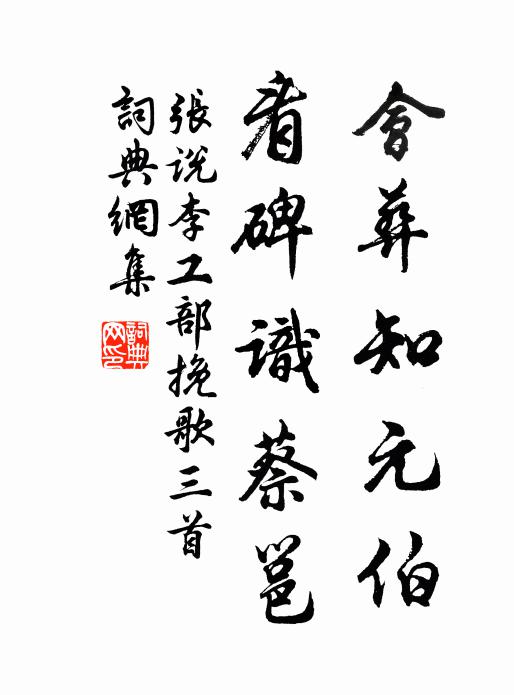 會葬知元伯
看碑識蔡邕
張說李工部挽歌三首
詞典網集
詞典網印